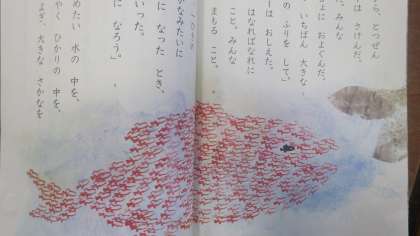 ら、とつぜん
は さけんだ。
だ。みんな
ょに およぐんだ。
いちばん 大きな
の ふりを して。」
ーは おしえた。
はなればなれに
こと。みんな
まもる こと。
かなみたいに
に なった とき、
いった。
に なろう。」
めたい 水の 中を、
やく ひかりの 中を、
よぎ、大きな さかなを